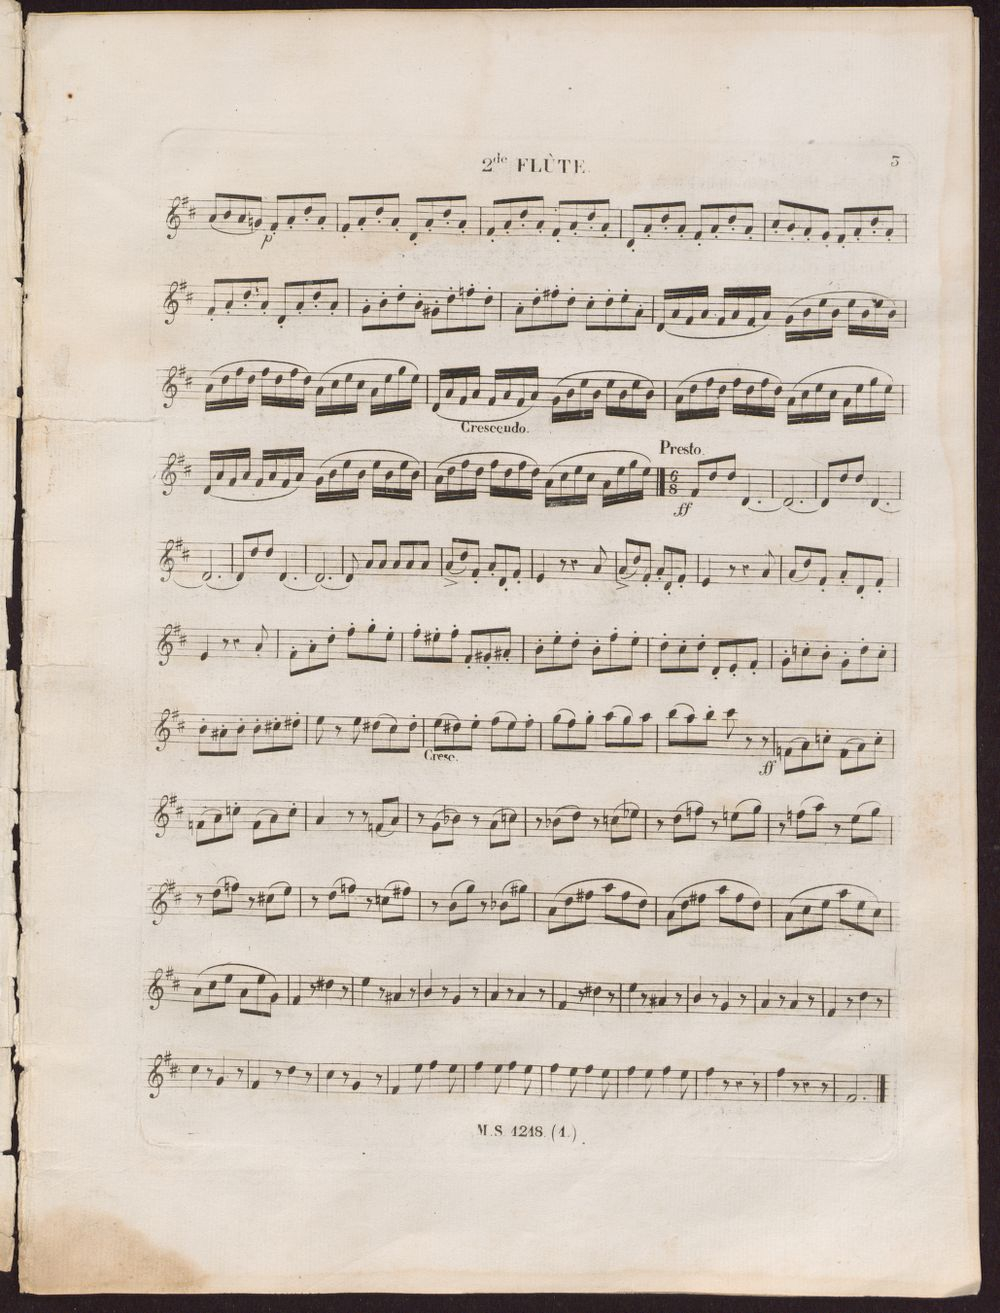 2de FLÙTE.
3
p
Crescendo.
Presto.
6
8
ff
Cresc.
ff
M.S. 1218. (1.)